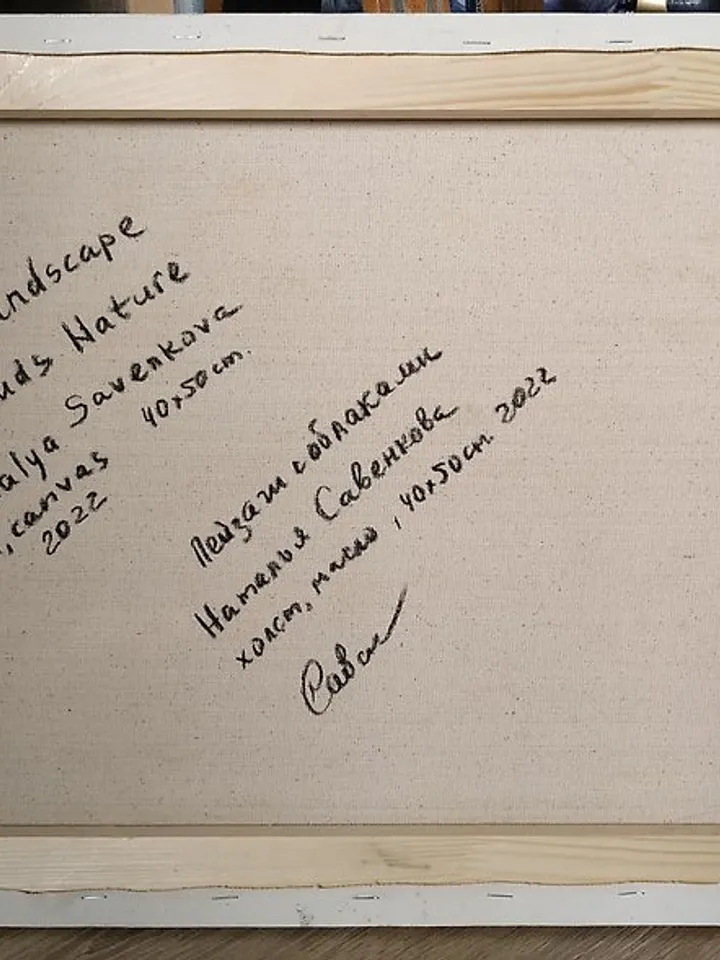 ndscape
uds Nature
alya Savenkova
, canvas 40x50cm.
2022
Пейзаж с облаками
Наталья Савенкова
холст, масло, 40x50см. 2022
Савен